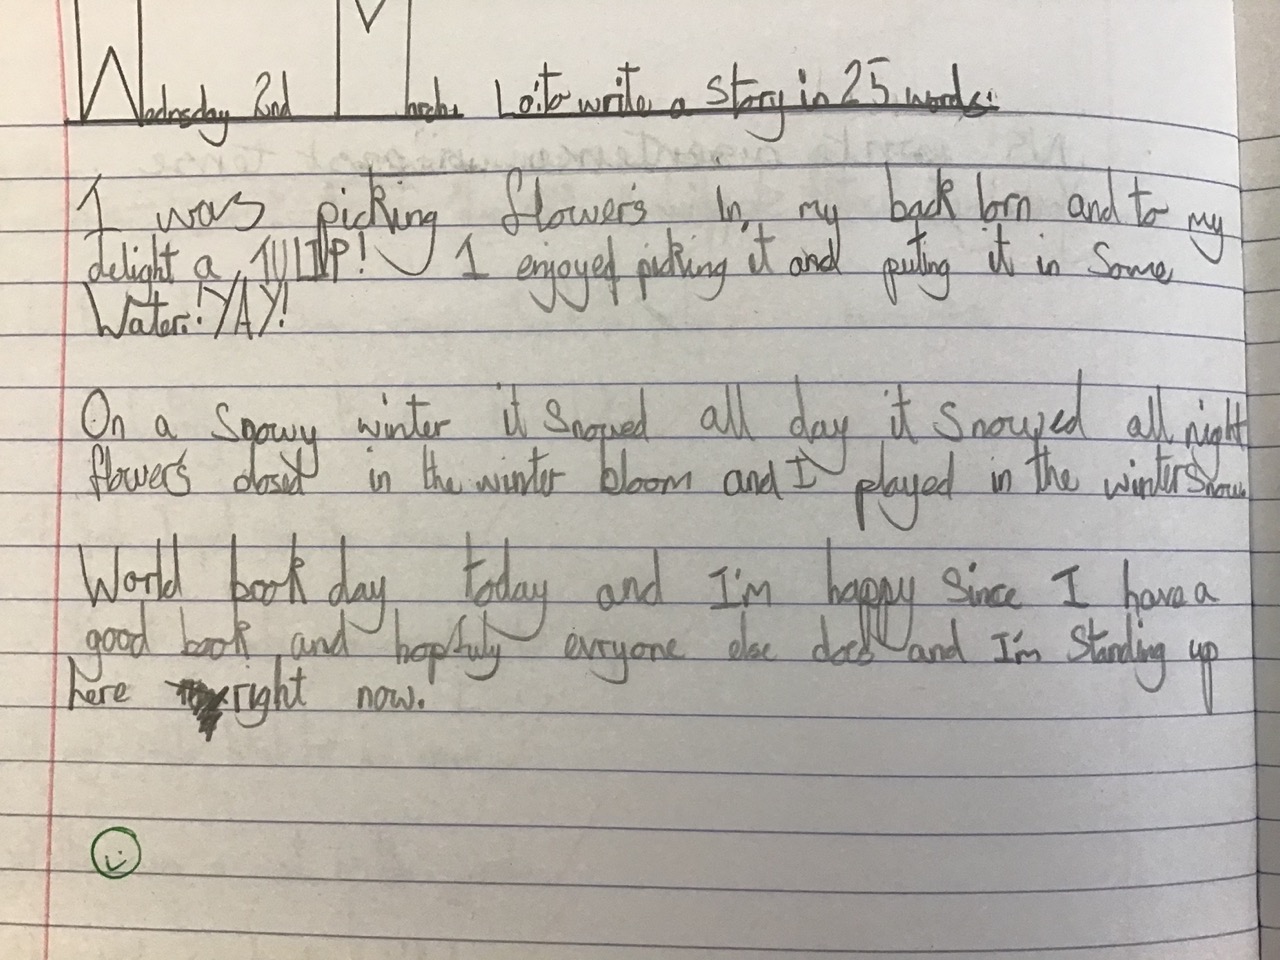 Wednesday 2nd March. Lo: to write a story in 25 words.
I was picking flowers in my back born and to my
delight a TULIP! I enjoyed picking it and puting it in Some
Water! YAY!
On a Snowy winter it Snowed all day it Snowed all night
flowers closed in the winter bloom and I played in the winter Snow.
World book day today and I'm happy Since I have a
good book and hopfuly evryone else does and I'm Standing up
here right now.